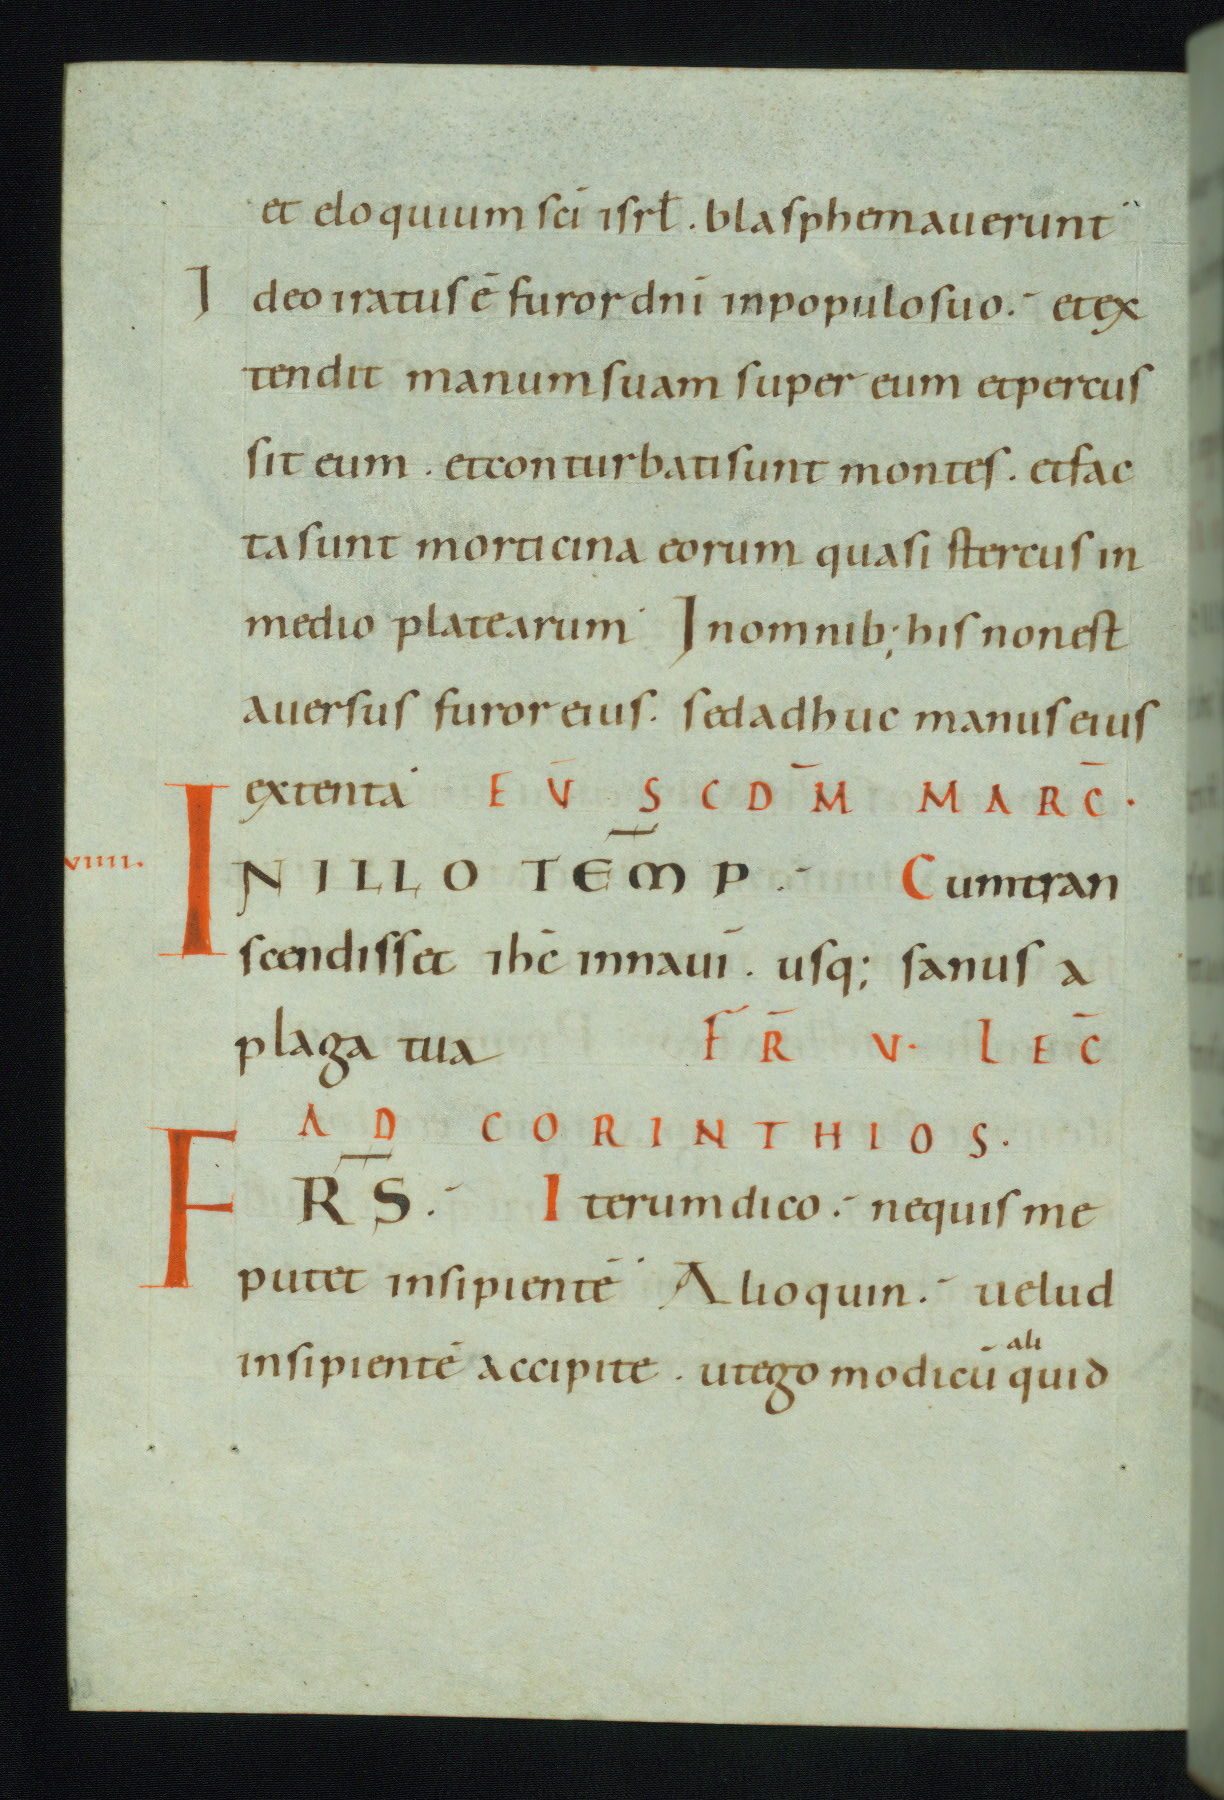 et eloquium sc̄i isrł. blasphemauerunt
Ideo iratus ē furor dn̄i in populo suo. et ex
tendit manum suam super eum et percus
sit eum. et conturbati sunt montes. et fac
ta sunt morticina eorum quasi stercus in
medio platearum In omnib; his non est
auersus furor eius. sed adhuc manus eius
extenta EV̄ SCDM̄ MARC̄.
VIIII. IN ILLO TEM̄P. Cum tran
scendisset ihc̄ in naui̅. usq; sanus a
plaga tua F̄R̄ V. LEC̄
AD CORINTHIOS.
FR̄S. Iterum dico. ne quis me
putet insipientē Alioquin. uelud
insipientē accipite. ut ego modicū ali
quid